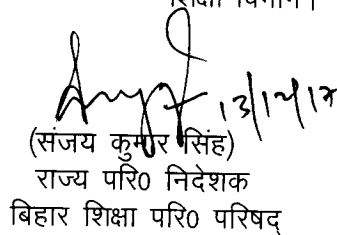 शिक्षा विभाग।
13/12/17
(संजय कुमार सिंह)
राज्य परि0 निदेशक
बिहार शिक्षा परि0 परिषद्